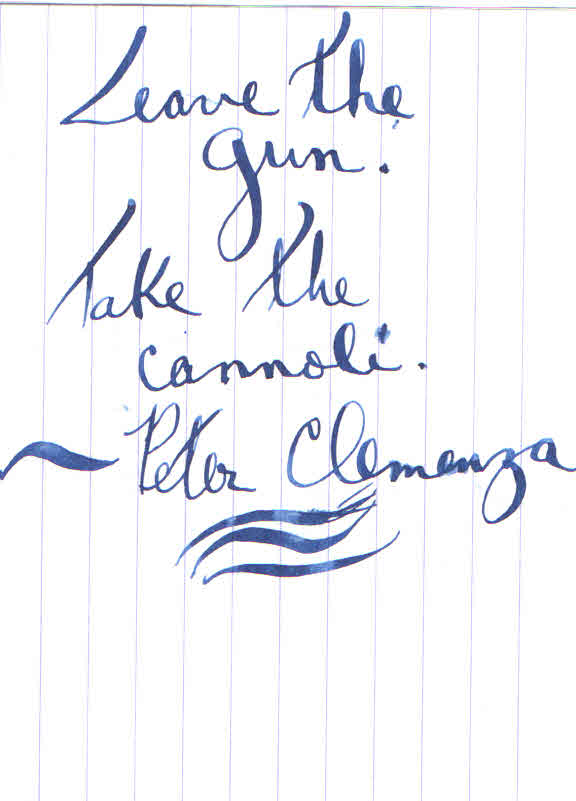 Leave the
gun.
Take the
cannoli.
~ Peter Clemenza